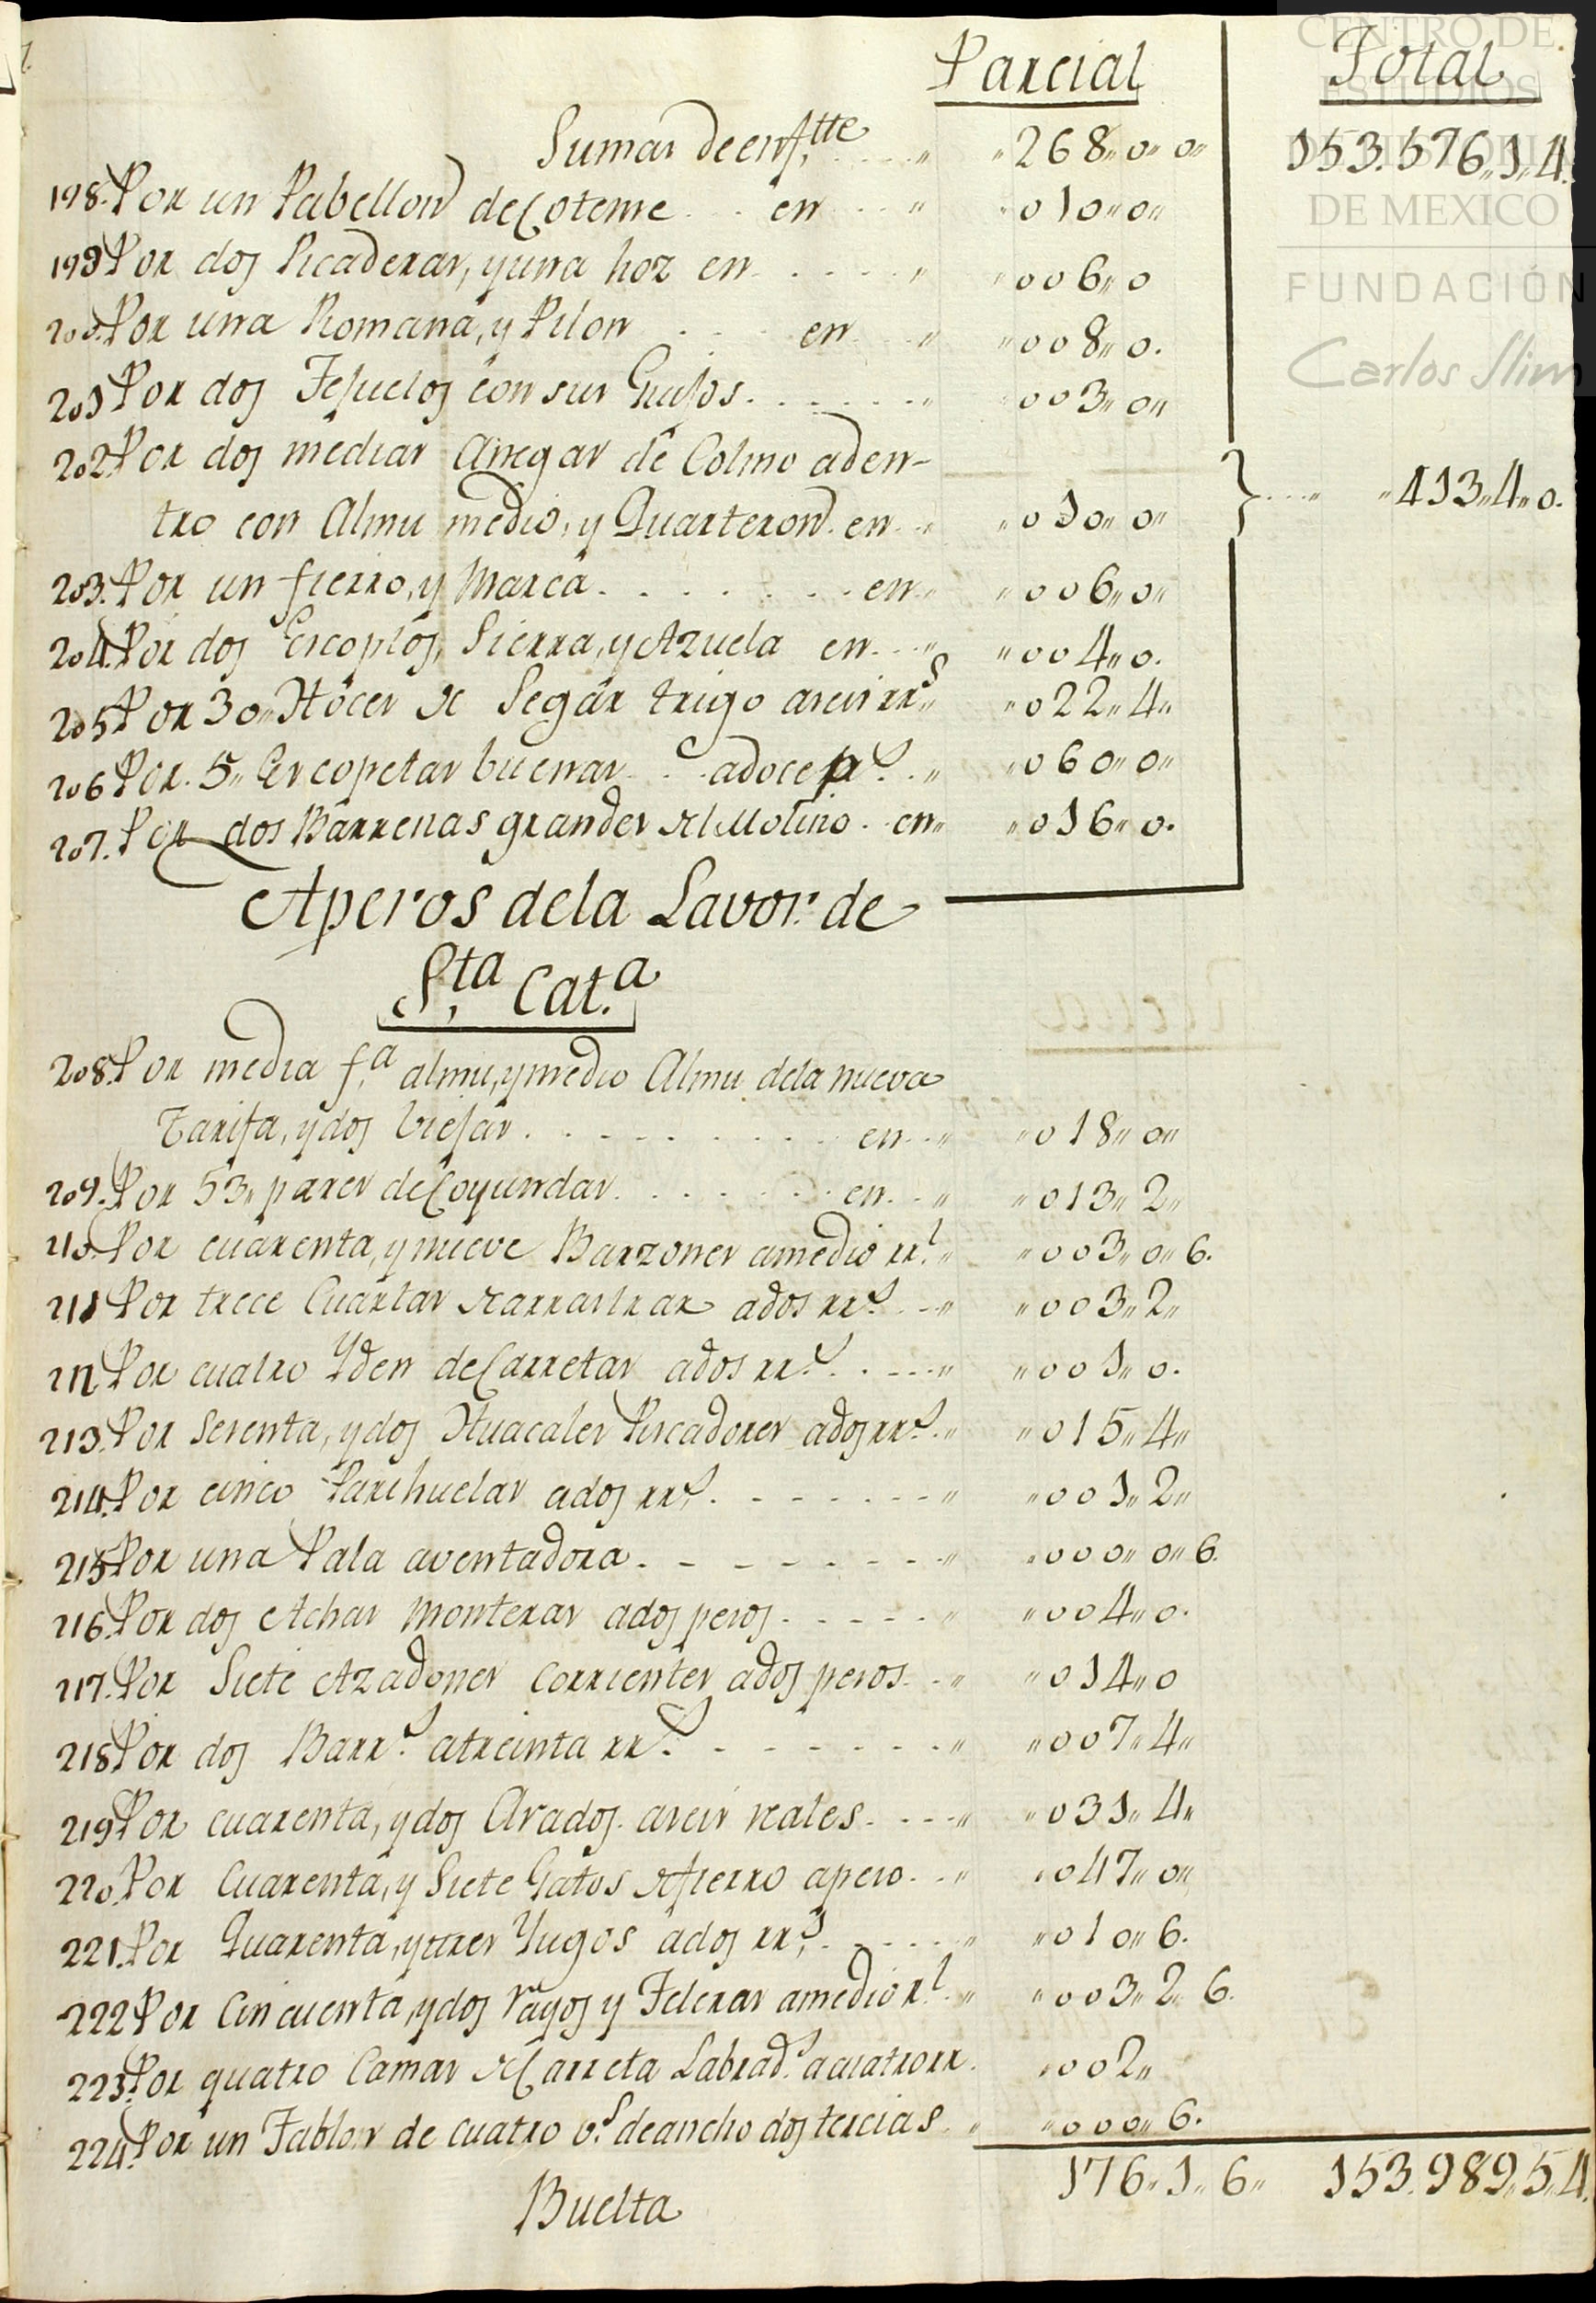 Parcial Total
Sumas de enf.tte " 268" 0" 0" 153.576" 1" 4.
198. Por un Pabellon de Cotense en " 010" 0"
199 Por dos Picaderas, y una hoz en " 006" 0
200. Por una Romana, y Pilon en " 008" 0.
201 Por dos Tejuelos con sus Guijos " 003" 0"
202. Por dos medias anegas de Colmo aden-
tro con Almu medio, y Quarteron. en " 010" 0" } " 413" 4" 0.
203. Por un fierro, y Marca en " 006" 0"
204. Por dos Escoplos, Sierra, y Azuela en " 004" 0.
205 Por 30" Hoces de Segar trigo aseis rr.s " 022" 4"
206 Por 5" Escopetas buenas adoce p.s " 060" 0"
207. Por dos Barrenas grandes del Molino en " 016" 0.
Aperos dela Lavor. de
S.ta Cat.a
208. Por media f.a almu, y medio Almu dela nueva
Tarifa, y dos biejas en " 018" 0"
209. Por 53" pares de Coyundas en " 013" 2"
210. Por cuarenta, y nueve Barzones amedio rr.l " 003" 0" 6.
211 Por trece Cuartas de arrastrar ados rr.s " 003" 2"
212 Por cuatro Yden de Carretas ados rr.s " 001" 0.
213. Por Sesenta, y dos Huacales Piscadores ados rr.s " 015" 4"
214. Por cinco Parihuelas ados rr.s " 001" 2"
215 Por una Pala aventadora " 000" 0" 6.
216. Por dos Achas Monteras ados pesos " 004" 0.
217. Por Siete Azadones Corrientes ados pesos " 014" 0
218 Por dos Barr.s atreinta rr.s " 007" 4"
219 Por cuarenta, y dos Arados aseis reales " 031" 4"
220. Por Cuarenta, y Siete Gatos de fierro apeso " 047" 0"
221. Por Quarenta, y tres Yugos ados rr.s " 010" 6.
222 Por Cincuenta, y dos rayos y Teleras amedio r.l " 003" 2" 6.
223. Por quatro Camas de Carreta Labrad.s acuatro rr. " 002"
224. Por un Tablon de cuatro v.s de ancho dos tercias " 000" 6.
Buelta 176" 1" 6" 153.989" 5" 4.
CENTRO DE
ESTUDIOS
DE HISTORIA
DE MEXICO
FUNDACIÓN
Carlos Slim